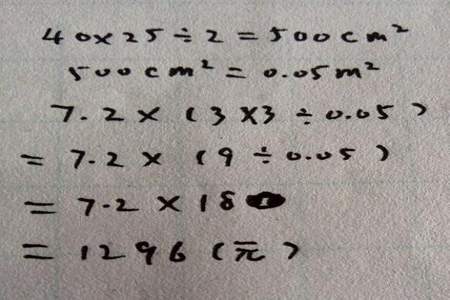 40×25÷2=500cm²
500cm²=0.05m²
7.2×(3×3÷0.05)
=7.2×(9÷0.05)
=7.2×180
=1296(元)